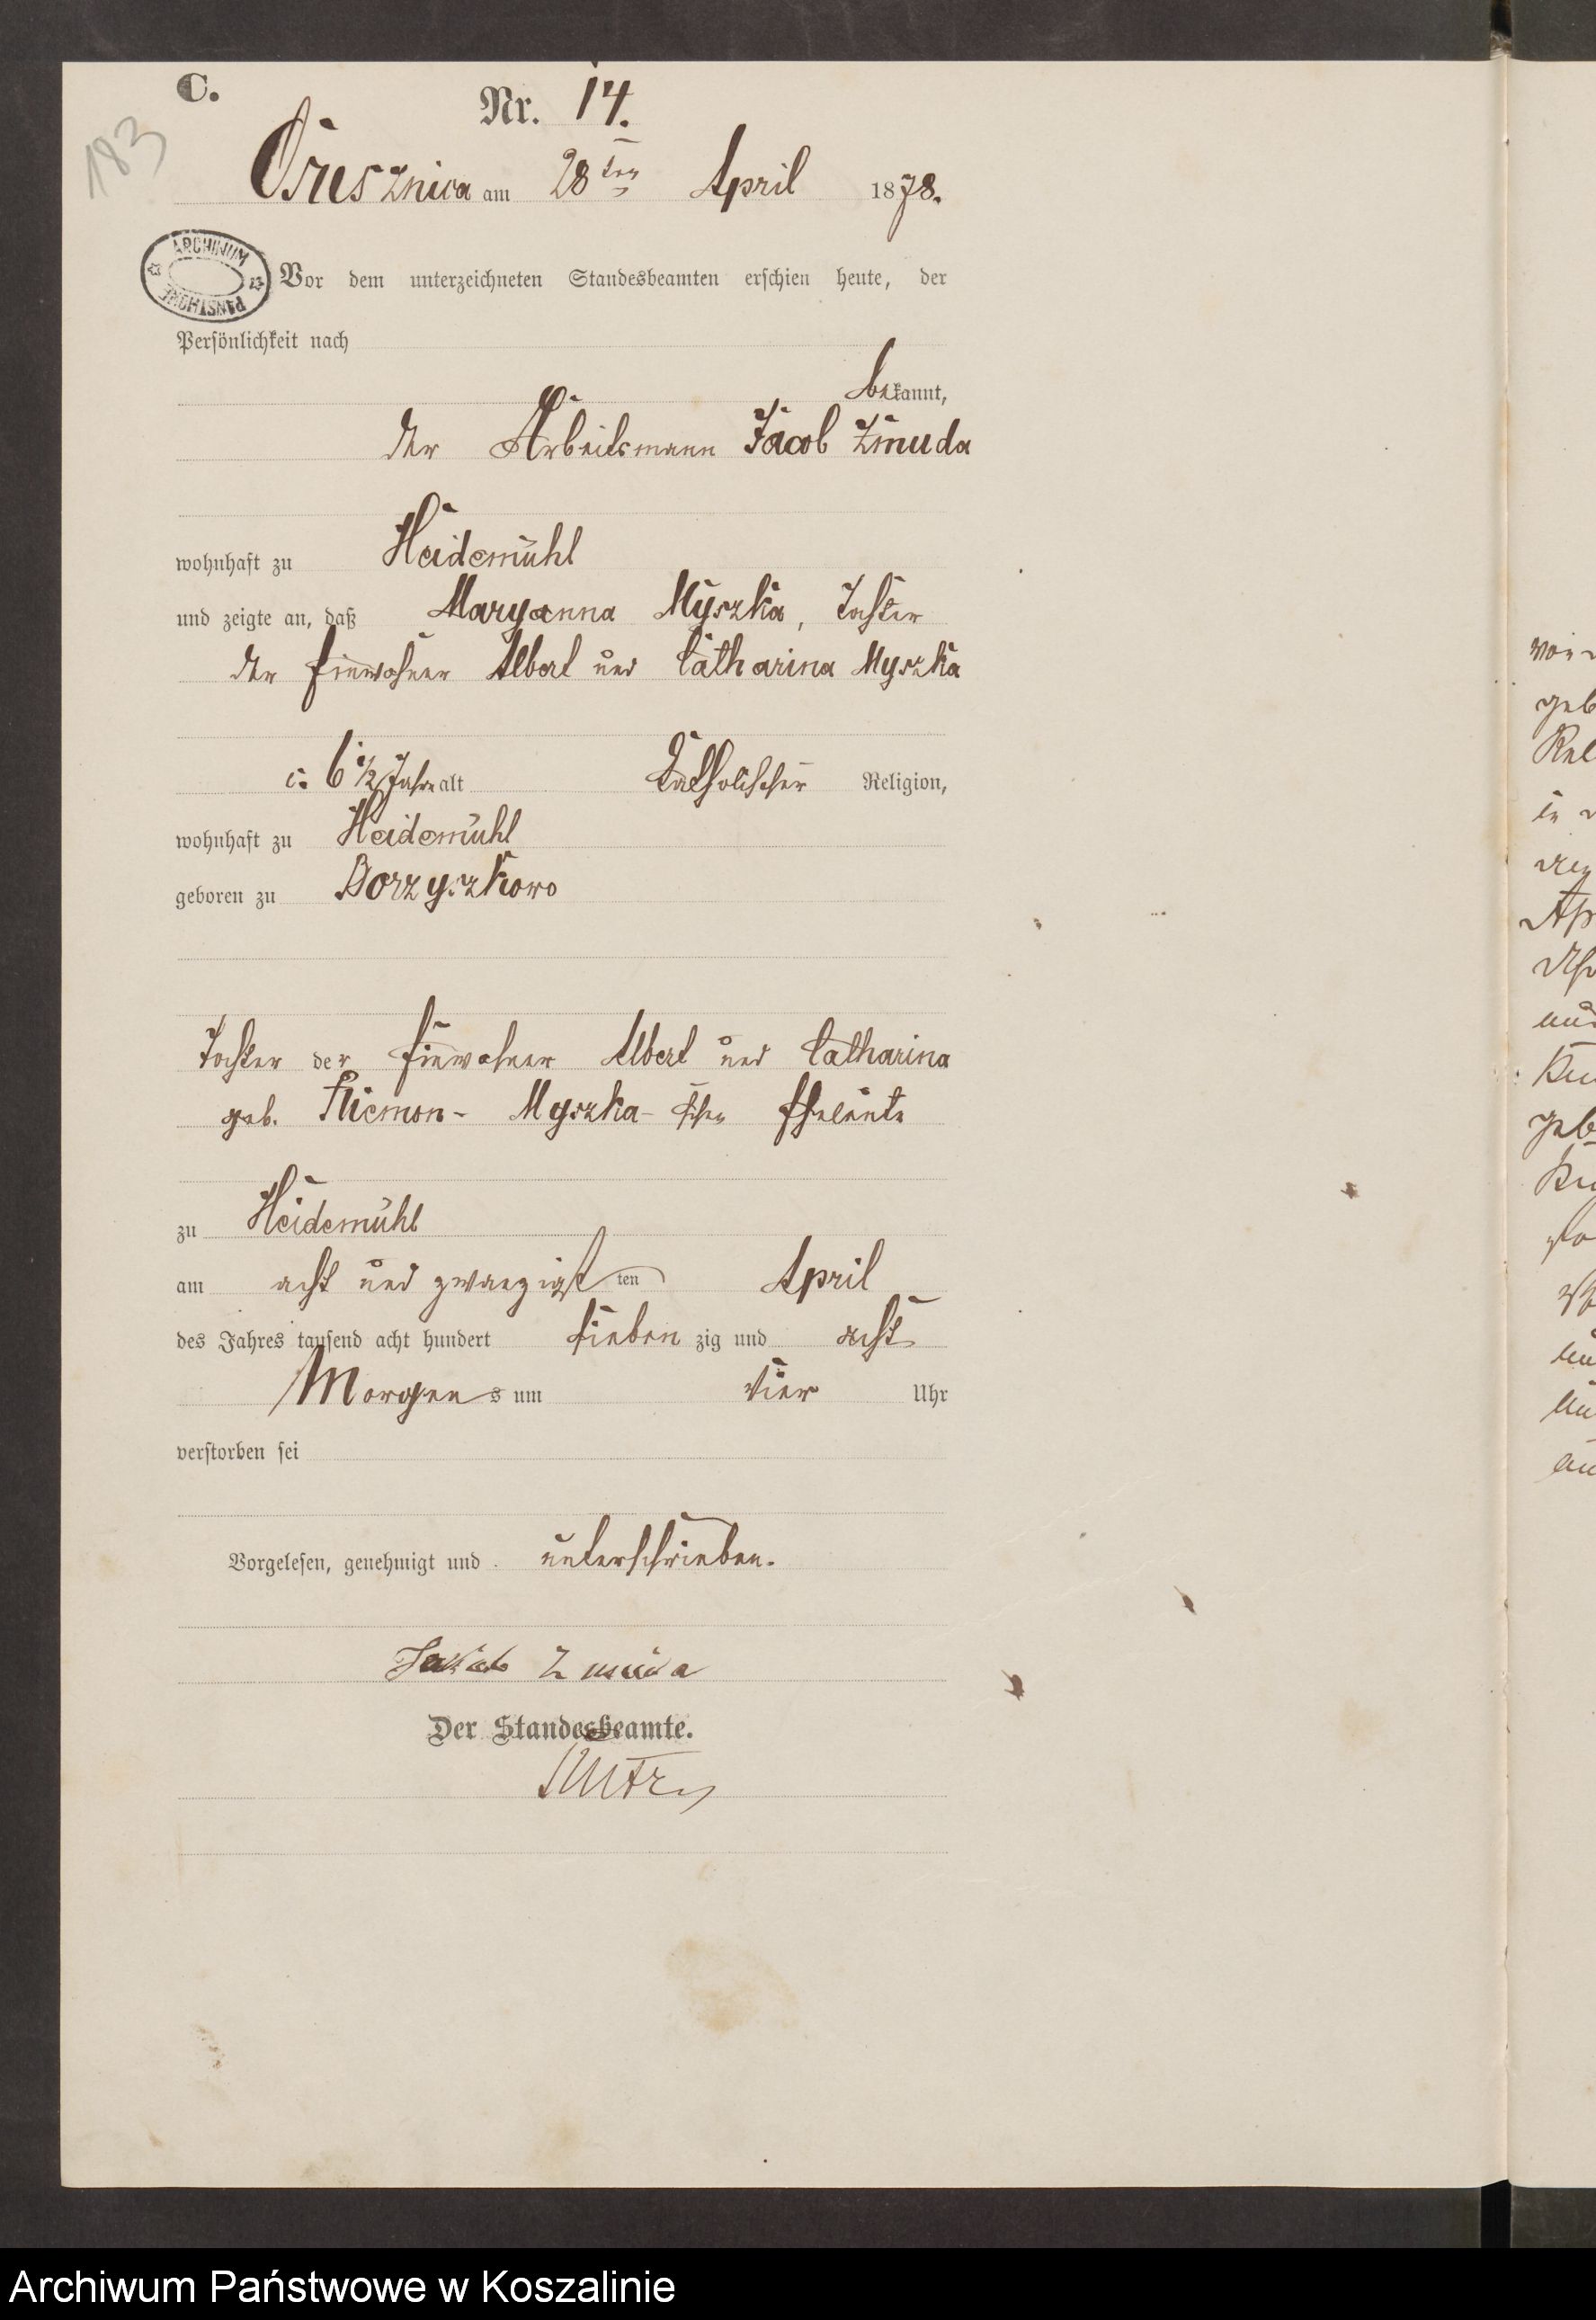 C.
Nr. 14.
183
Osusznica am 28ten April 1878.
ARCHIWUM PAŃSTWOWE
Vor dem unterzeichneten Standesbeamten erschien heute, der
Persönlichkeit nach
bekannt,
der Arbeitsmann Jacob Zmuda
wohnhaft zu Heidemühl
und zeigte an, daß Maryanna Myszka, Tochter
der Einwohner Albert und Catharina Myszka
6 1/2 Jahre alt Katholischer Religion,
wohnhaft zu Heidemühl
geboren zu Borzyszkowo
Tochter der Einwohner Albert und Catharina
geb. Myszka-schen Eheleute
zu Heidemühl
am acht und zwanzigsten April
des Jahres tausend acht hundert siebenzig und acht
Morgens um vier Uhr
verstorben sei
Vorgelesen, genehmigt und unterschrieben.
Jakob Zmuda
Der Standesbeamte.
von
geb
Rel
in
den
Ap
und
geb
Archiwum Państwowe w Koszalinie